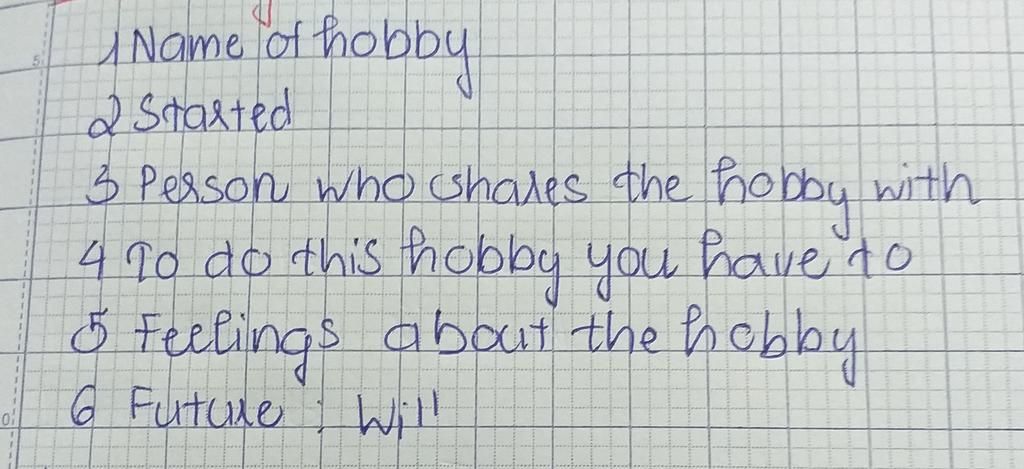 1 Name of hobby
2 Started
3 Person who shares the hobby with
4 To do this hobby you have to
5 Feelings about the hobby
6 Future : Will